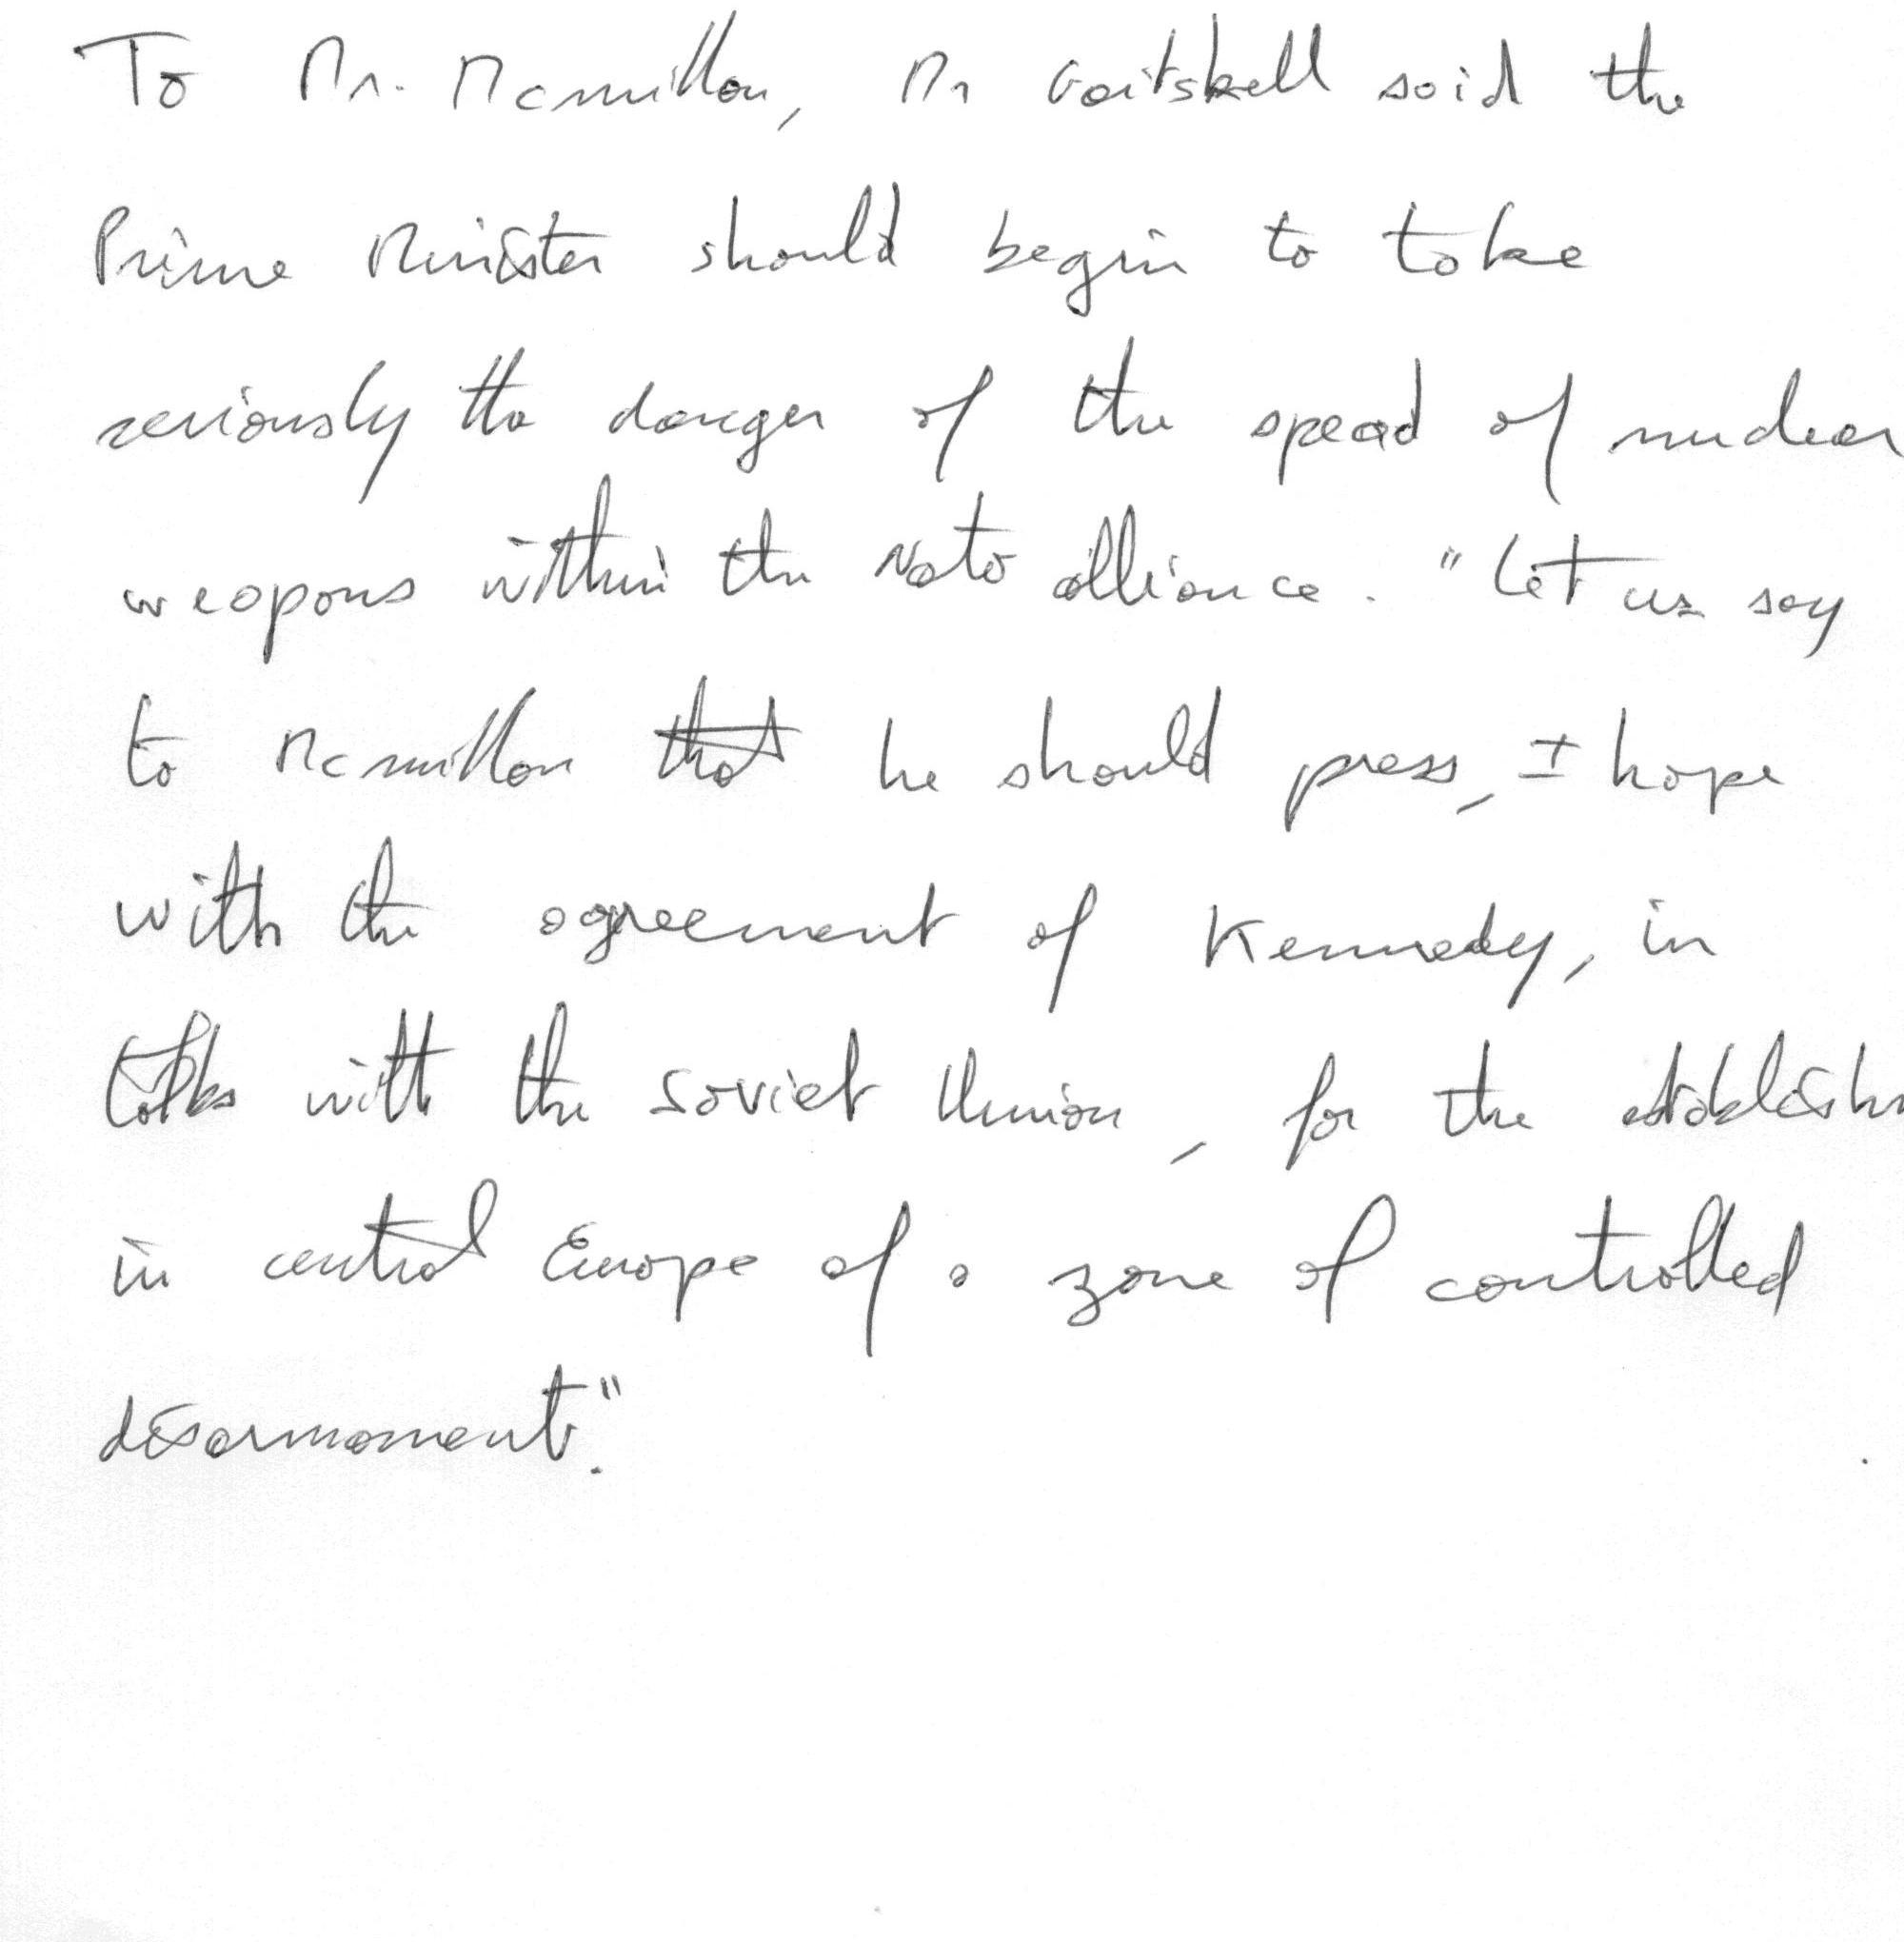 To Mr. Mcmillan, Mr Gaitskell said the
Prime Minister should begin to take
seriously the danger of the spead of nuclear
weapons within the Nato alliance. "Let us say
to Mcmillan that he should press, I hope
with the agreement of Kennedy, in
talks with the Soviet Union, for the establishm
in central Europe of a zone of controlled
disarmament."